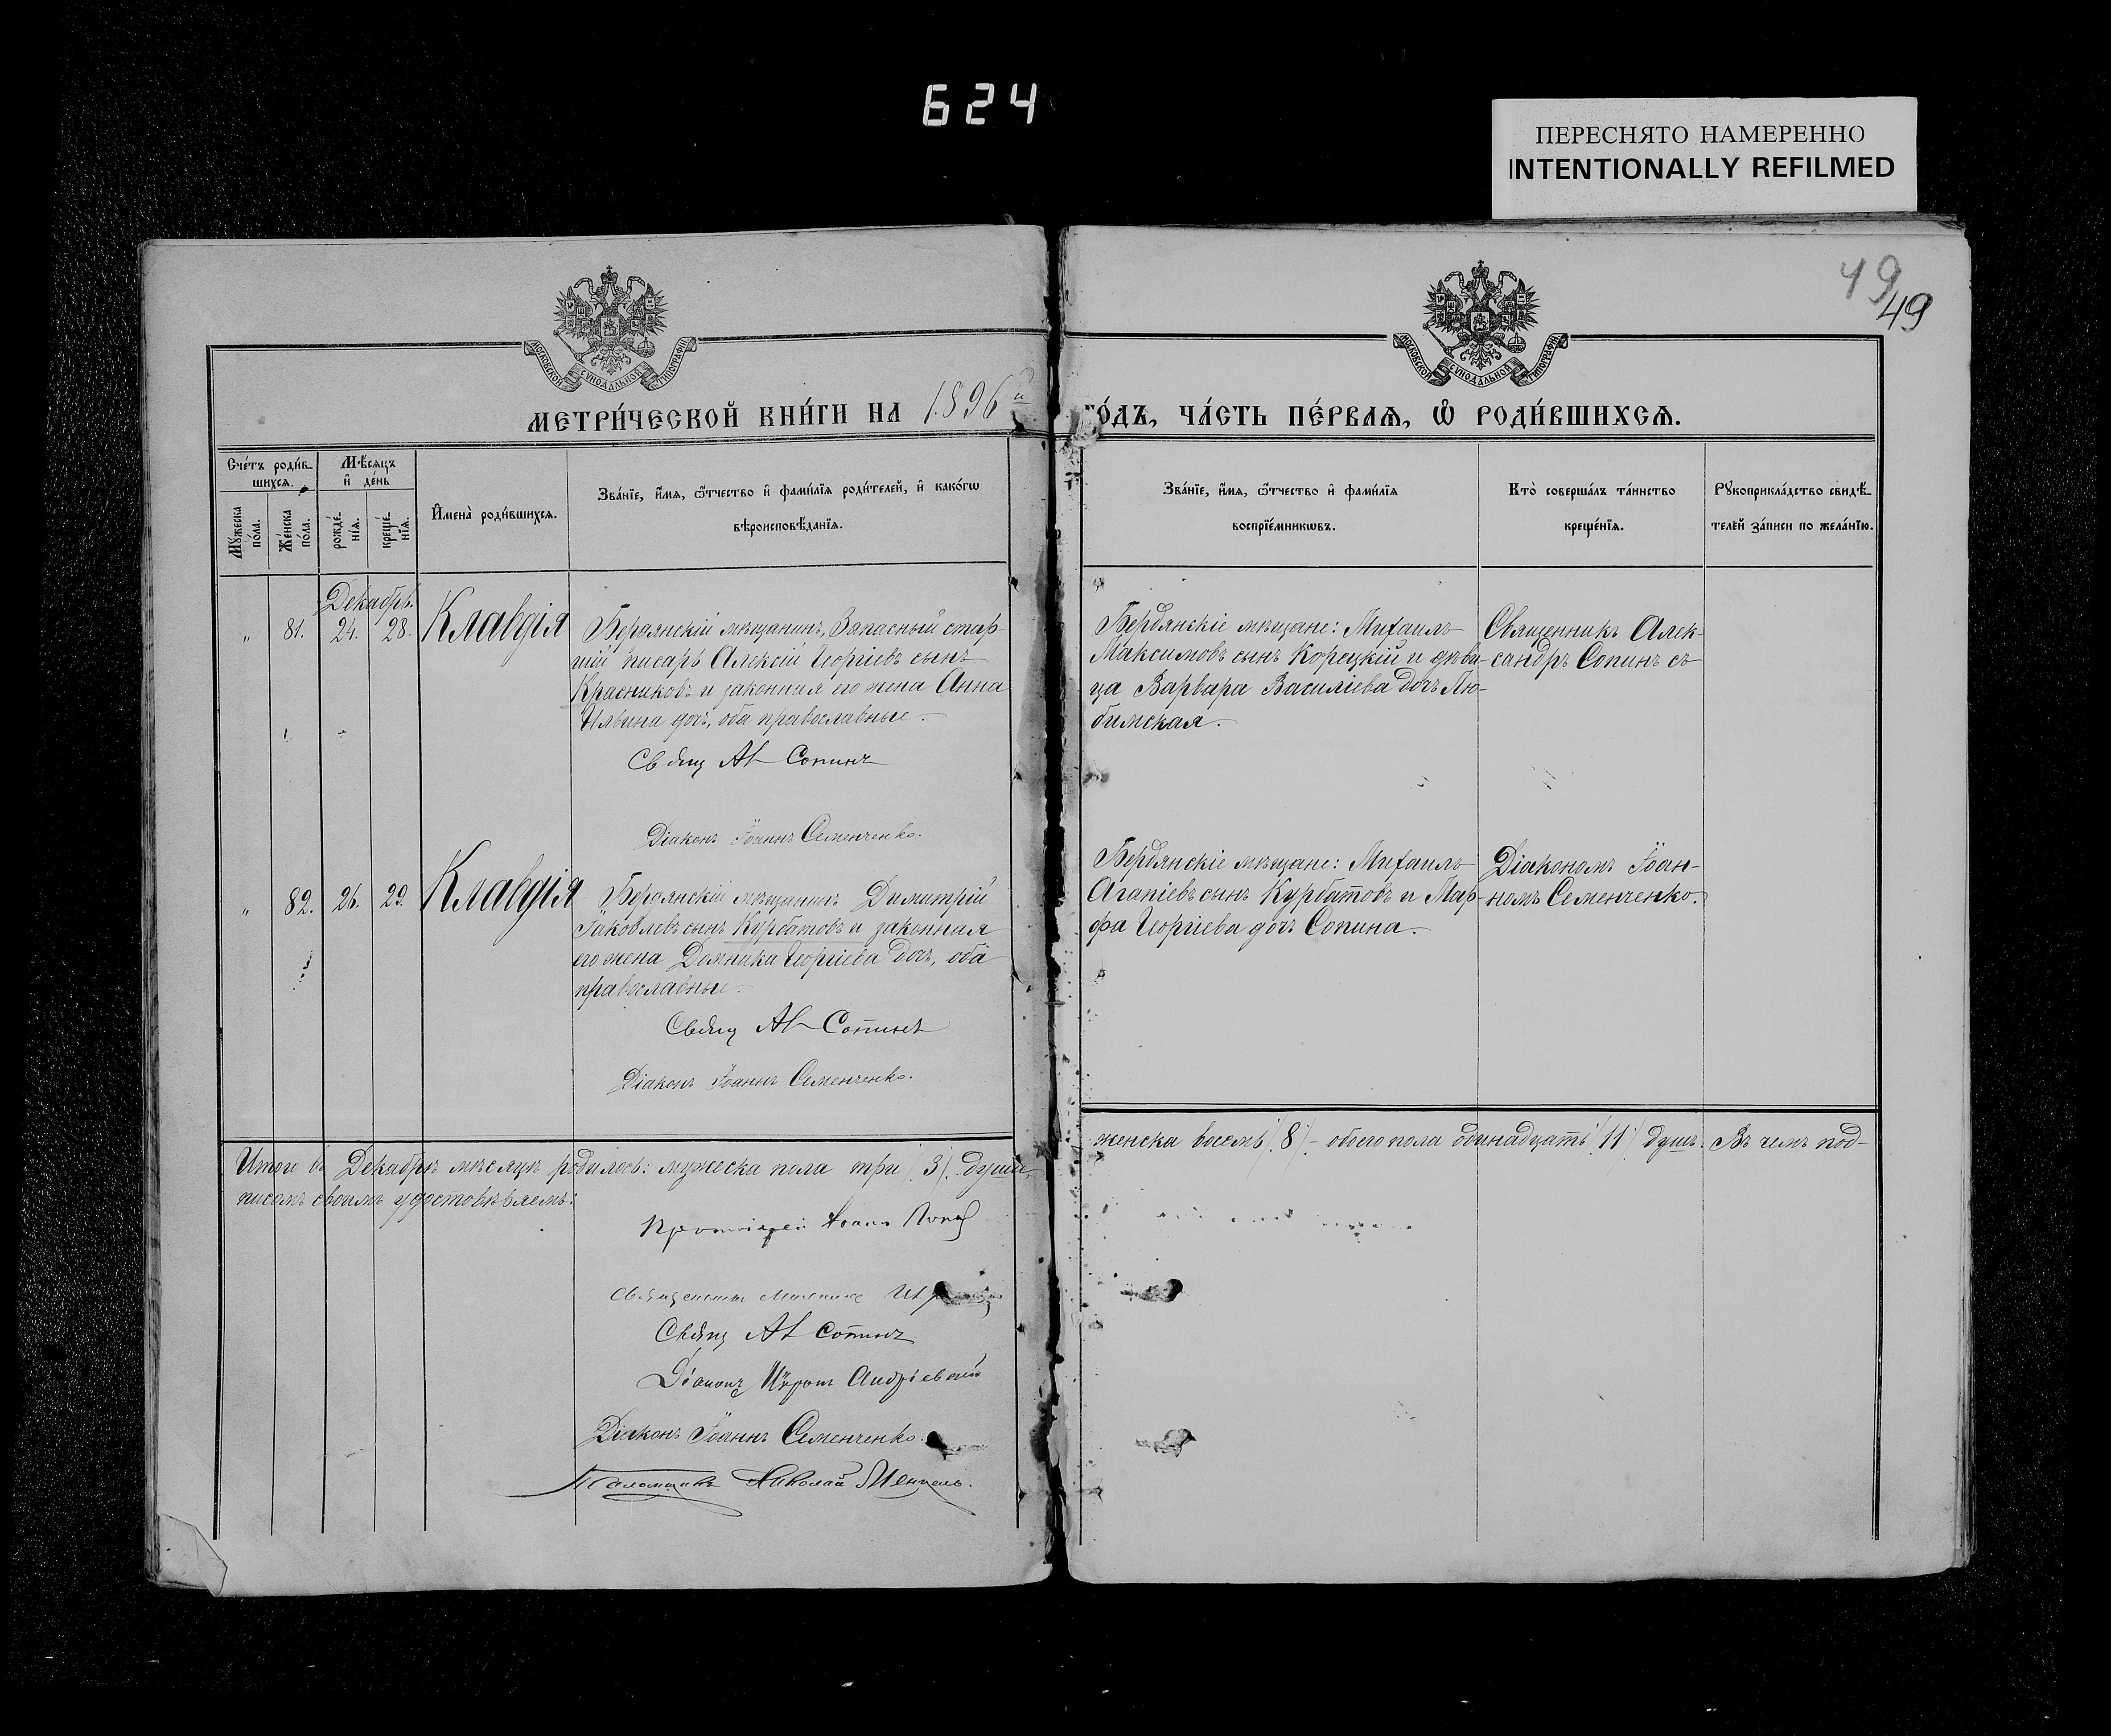 624
ПЕРЕСНЯТО НАМЕРЕННО
INTENTIONALLY REFILMED
49
49
МОСКОВСКОЙ СѴНОДАЛЬНОЙ ТИПОГРАФІИ
МОСКОВСКОЙ СѴНОДАЛЬНОЙ ТИПОГРАФІИ
МЕТРИ́ЧЕСКОЙ КНИ́ГИ НА 1896й ГО́ДЪ, ЧА́СТЬ ПЕ́РВАѦ, Ѡ҆ РОДИ́ВШИХСѦ.
Сче́тъ роди́в-
шихсѧ.
Мꙋ́жеска по́ла.
Же́нска по́ла.
Мѣ́сѧцъ
и҆ де́нь
рожде́-нїѧ.
креще́-нїѧ.
И҆мена̀ роди́вшихсѧ.
Зва́нїе, и҆́мѧ, ѻ҆́тчество и҆ фами́лїѧ роди́телей, и҆ како́гѡ
вѣроисповѣ́данїѧ.
Зва́нїе, и҆́мѧ, ѻ҆́тчество и҆ фами́лїѧ
воспрїе́мникѡвъ.
Кто̀ соверша́лъ та́инство
креще́нїѧ.
Рꙋкоприкла́дство свидѣ́-
телей за́писи по жела́нїю.
Декабрь.
" 81. 24. 28. Клавдія
Бердянскій мѣщанинъ, Запасный стар-
шій писарь Алексій Георгіевъ сынъ
Красниковъ и законная его жена Анна
Ильина дочь, оба православные.
Свящ Ал Сопинъ
Діаконъ Іоаннъ Семенченко.
Бердянскіе мѣщане: Михаилъ
Максимовъ сынъ Корецкій и дѣви-
ца Варвара Василіева дочь Лю-
бимская.
Священникъ Алек-
сандръ Сопинъ съ
" 82. 26. 29. Клавдія
Бердянскій мѣщанинъ Димитрій
Іаковлевъ сынъ Курбатовъ и законная
его жена Домника Георгіева дочь, оба
православные.
Свящ Ал Сопинъ
Діаконъ Іоаннъ Семенченко.
Бердянскіе мѣщане: Михаилъ
Агапіевъ сынъ Курбатовъ и Мар-
фа Георгіева дочь Сопина.
Діакономъ Іоан-
номъ Семенченко.
Итого въ Декабрѣ мѣсяцѣ родилось: мужеска пола три /3/ души,
женска восемь /8/ – обоего пола одинадцать /11/ душъ. Въ чемъ под-
писомъ своимъ удостовѣряемъ:
Протоіерей Іоаннъ
Священникъ
Свящ Ал Сопинъ
Діаконъ Андріевскій
Діаконъ Іоаннъ Семенченко.
Псаломщикъ Николай